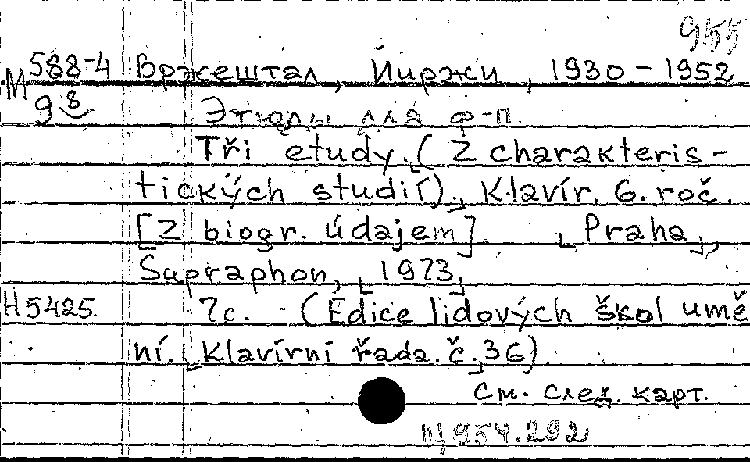 955
М 588-4 Вржештал, Йиржи, 1930-1952
9 8 Этюды для ф-п.
Tři etudy (Z charakteris-
tických studií), Klavír. 6. roč.
[Z biogr. údajem] Praha,
Supraphon, 1973
Н5425 7с. (Edice lidových škol umě
ní. Klavírní řada. č. 36)
См. след. карт.
954.292